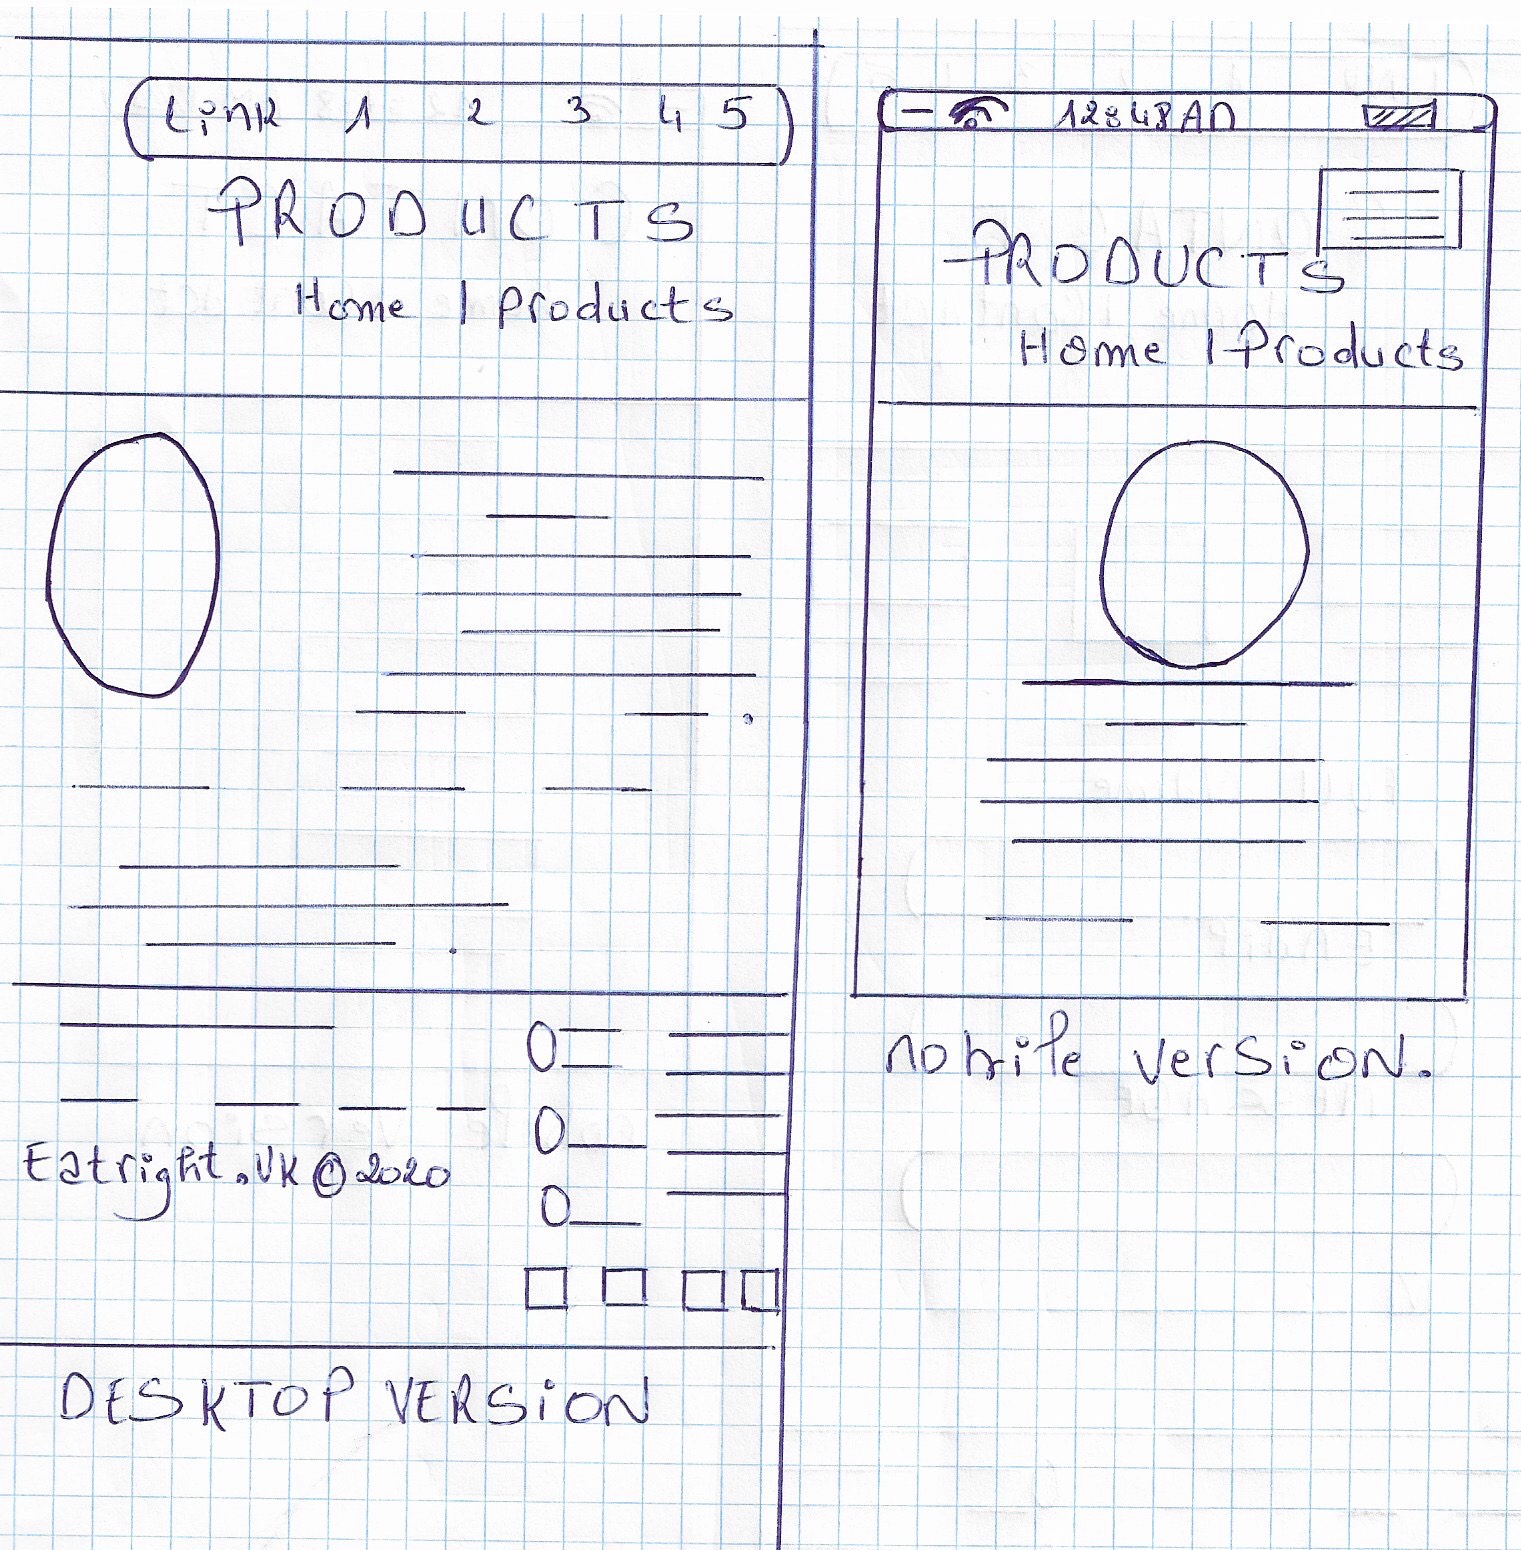 Link 1 2 3 4 5
PRODUCTS
Home | Products
Eatright.UK © 2020
DESKTOP VERSION
12:48 AM
PRODUCTS
Home | Products
mobile version.